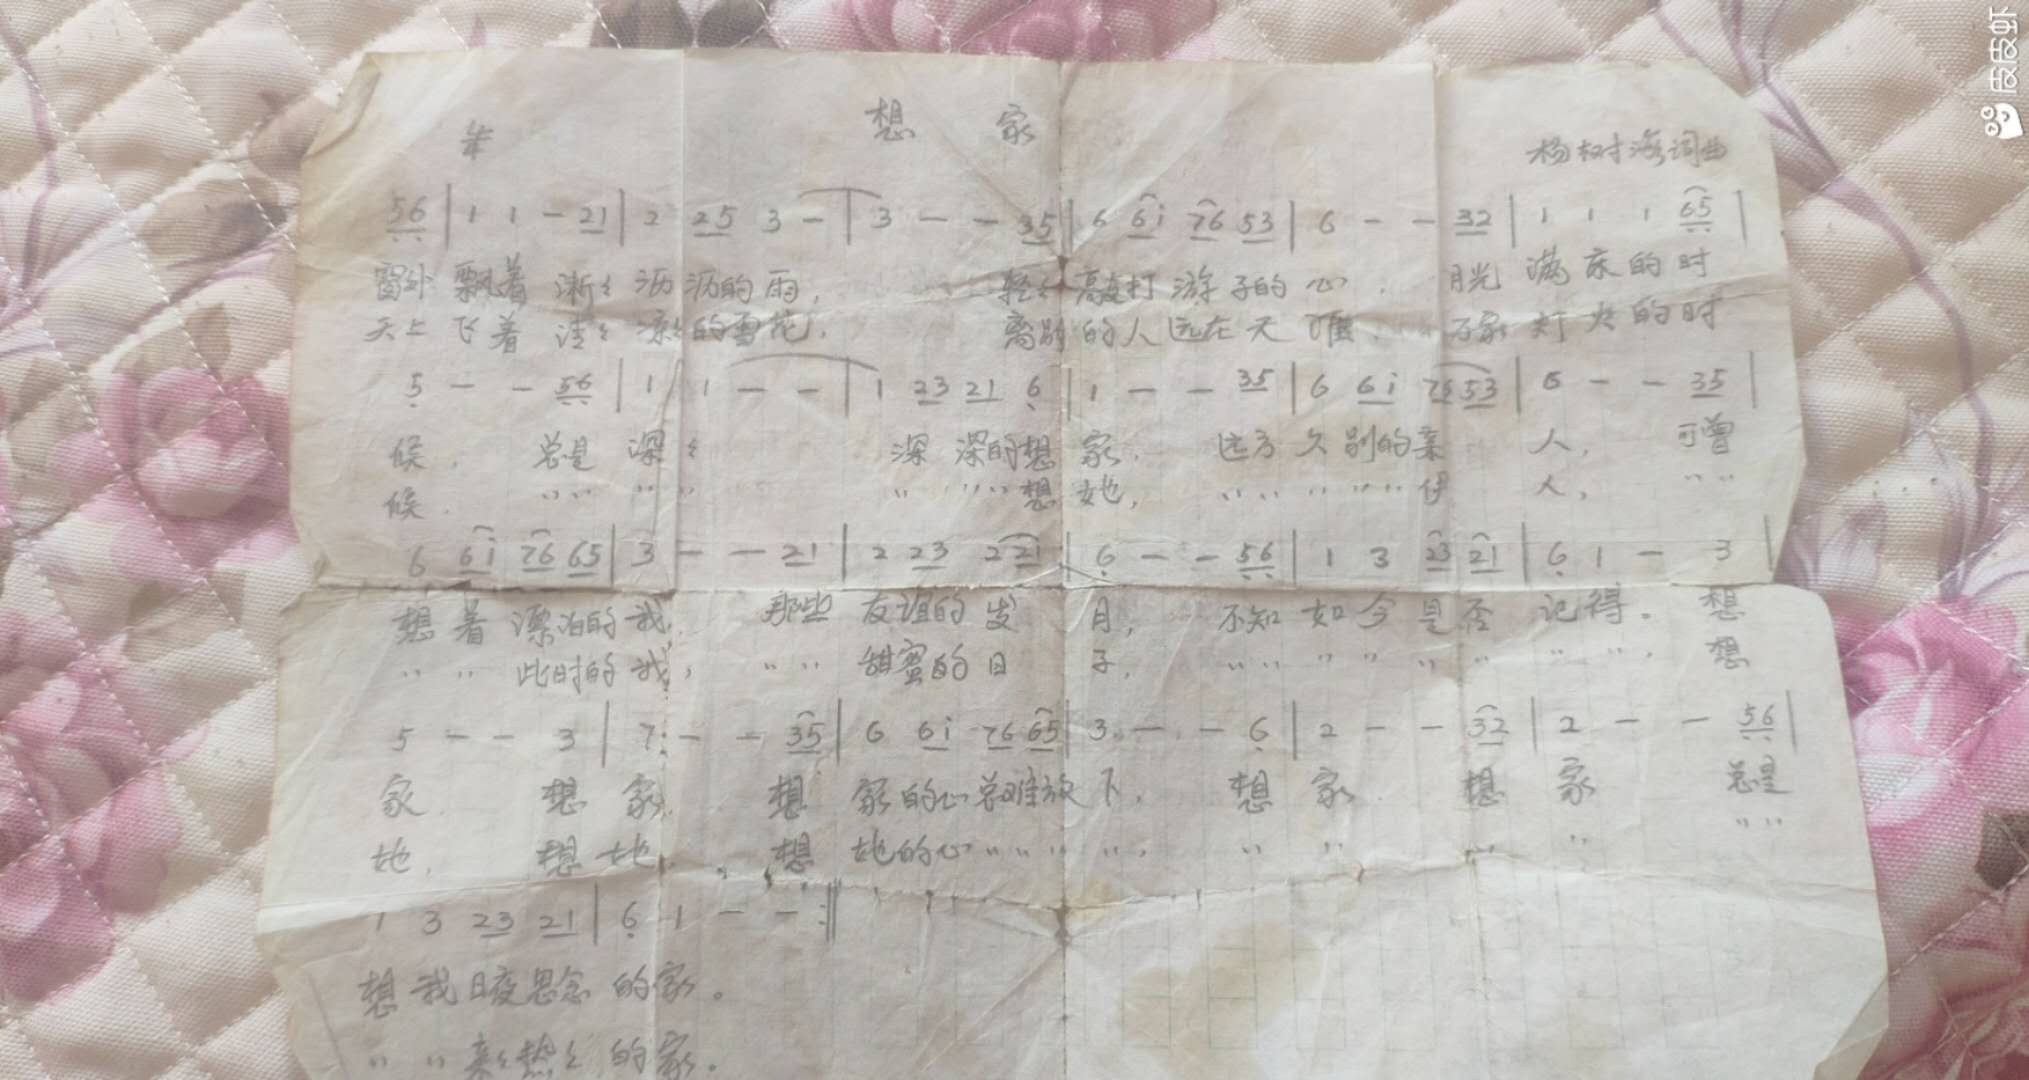 想 家
杨树海词曲
56 | 1 1 - 21 | 2 25 3 - | 3 - - 35 | 6 6i 76 53 | 6 - - 32 | 1 1 1 65 |
窗外飘着淅々沥沥的雨, 轻々敲打游子的心. 月光满床的时
天上飞着清々凉々的雪花, 离别的人远在天涯. 万家灯火的时
5 - - 56 | 1 1 - - | 1 23 21 6 | 1 - - 35 | 6 6i 76 53 | 6 - - 35 |
候, 总是深々 深深的想家. 远方久别的亲人, 可曾
候. 〃〃〃〃 〃〃〃想她, 〃〃〃〃〃伊人, 〃〃
6 6i 76 65 | 3 - - 21 | 2 23 2 21 | 6 - - 56 | 1 3 23 21 | 6 1 - 3 |
想着漂泊的我, 那些友谊的岁月, 不知如今是否记得。想
〃〃此时的我, 〃〃甜蜜的日子, 〃〃〃〃〃〃〃〃. 想
5 - - 3 | 7 - - 35 | 6 6i 76 65 | 3 - - 6 | 2 - - 32 | 2 - - 56 |
家. 想家, 想家的心总难放下, 想家 想家 总是
她. 想她, 想她的心〃〃〃〃, 〃〃 〃〃 〃〃
1 3 23 21 | 6 1 - - :‖
想我日夜思念的家。
〃〃亲々热々的家。
皮皮虾